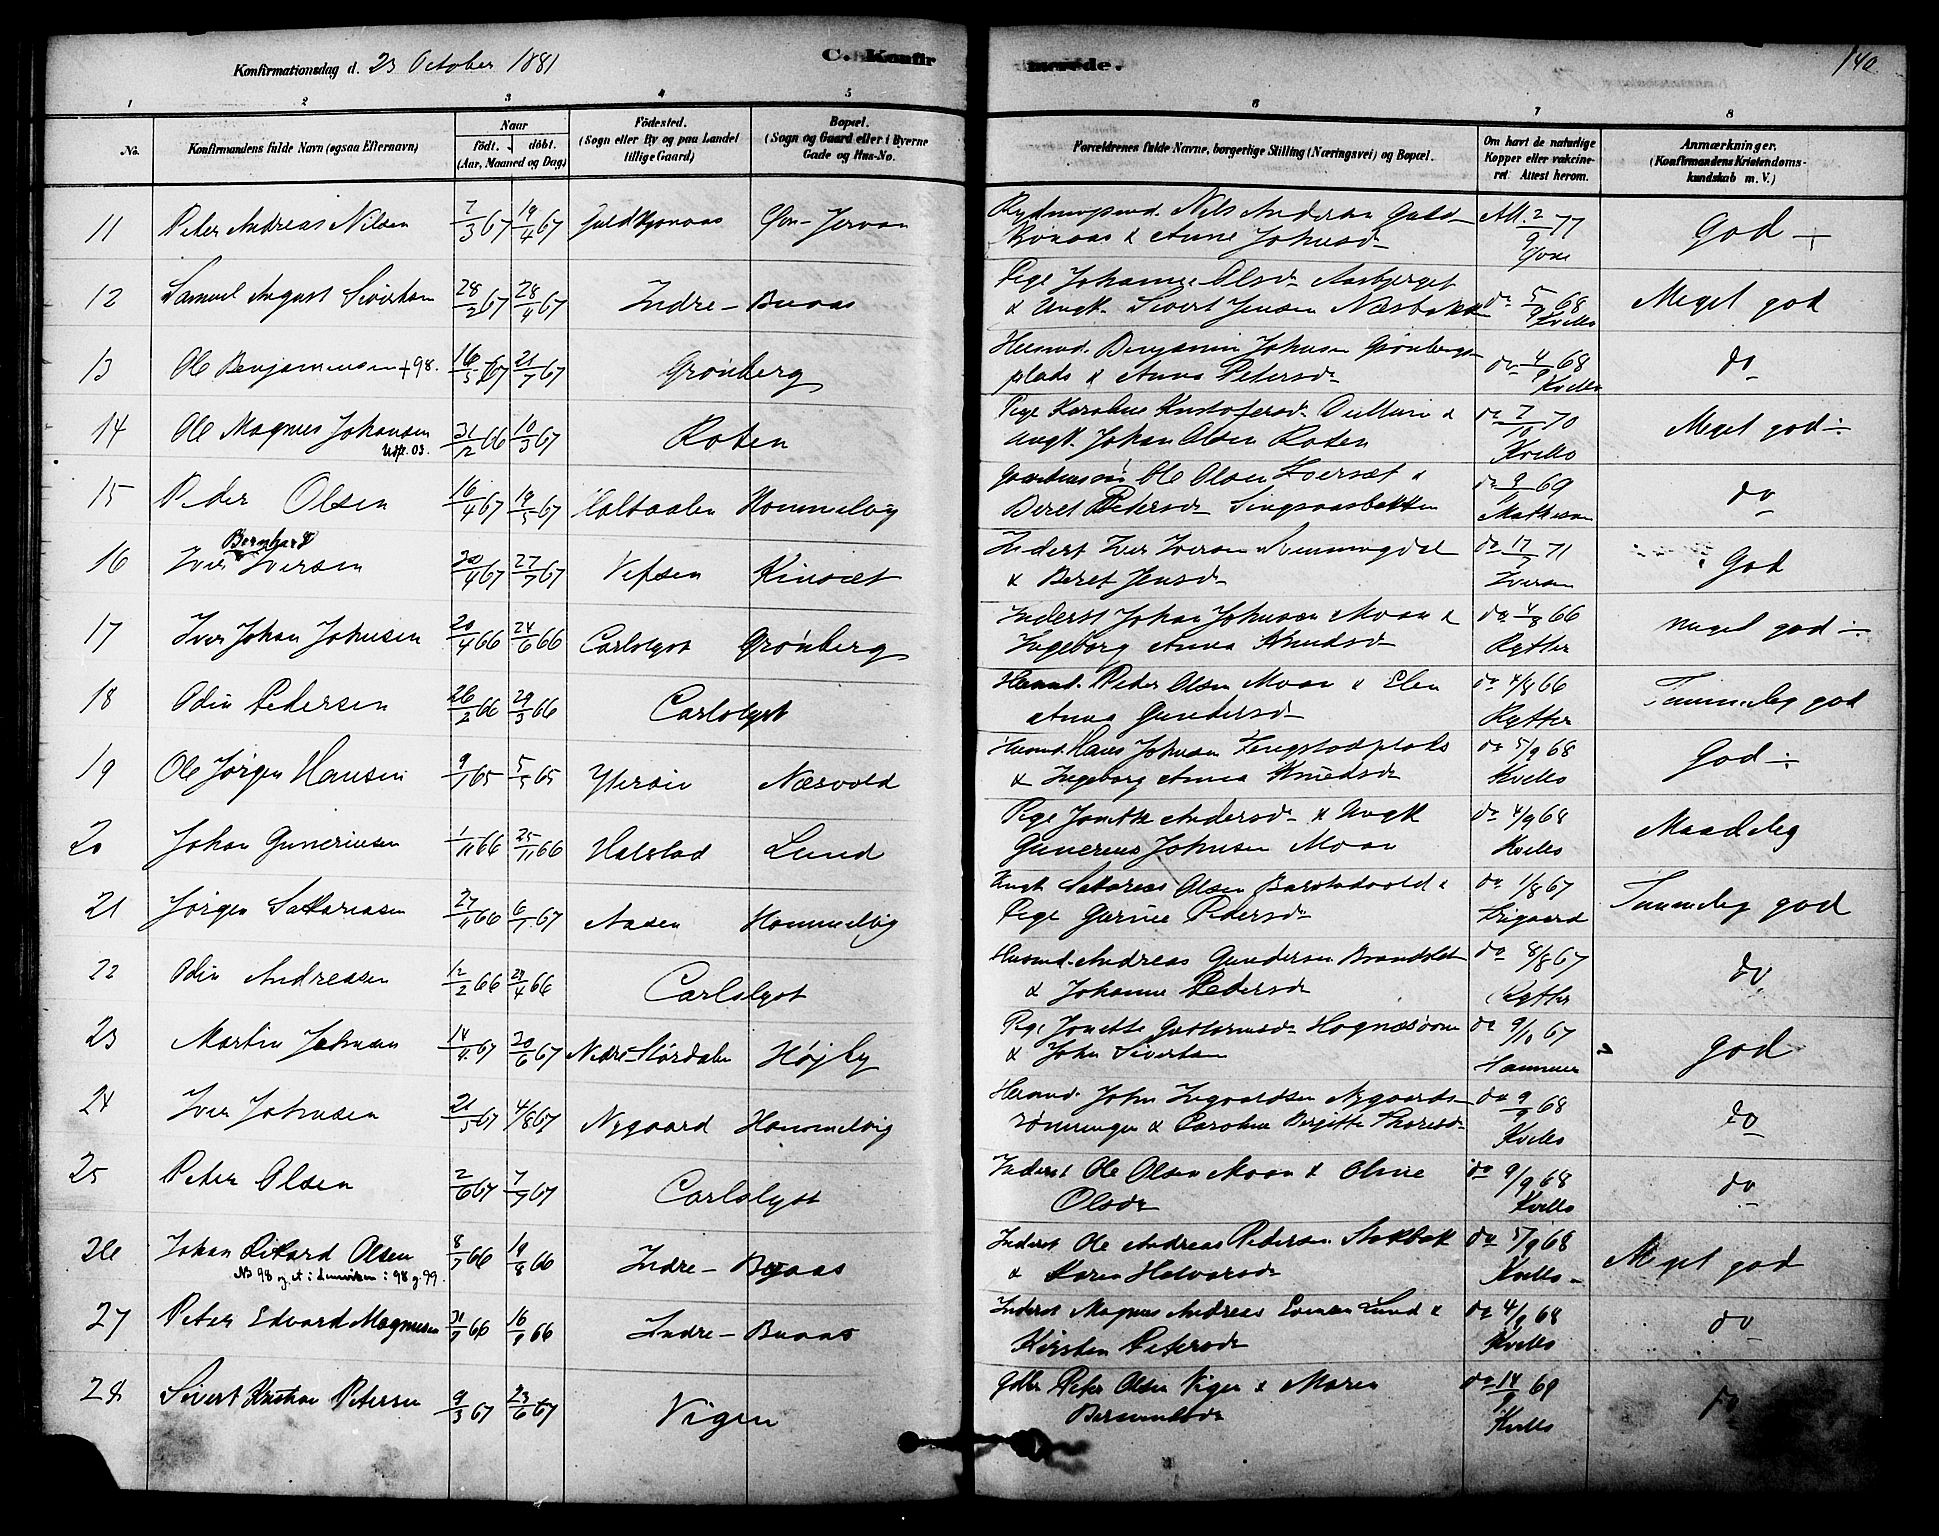 Konfirmationsdag d. 23 October 1881
C. Konfirmerede.
140
1 2 3 4 5 6 7 8
No. Konfirmandens fulde Navn (ogsaa Efternavn) Naar født. døbt. (Aar, Maaned og Dag) Födested. (Sogn eller By og paa Landet tillige Gaard) Bopæl. (Sogn og Gaard eller i Byerne Gade og Hus-No. Forældrenes fulde Navne, borgerlige Stilling (Næringsvei) og Bopæl. Om havt de naturlige Kopper eller vakcineret. Attest herom. Anmærkninger. (Konfirmandens Kristendomskundskab m. V.)
11 Peter Andreas Nilsen 7/3 67 19/4 67 Jervan Nils Andersen & Anne Johnsd. Att. 2/9 77 God
12 Samuel August Sivertsen 28/2 67 28/4 67 Indre-Buaas Pige Johanne Olsd. Aasbjerget & Ungk. Sivert Jensen Næsbakk do 5/9 68 Kvello Meget god
13 Ole Benjaminsen +98. 16/5 67 21/7 67 Grønberg Husmd. Benjamin Johnsen Grønbergs-plads & Anna Petersd. do 4/9 68 Kvello do
14 Ole Magnus Johansen Udfl. 03. 31/12 66 10/3 67 Roten Pige Karoline Kristofersd. & Ungk. Johan Olsen Roten do 7/9 70 Kvello Meget god
15 Peder Olsen 16/4 67 19/5 67 Holtaalen Hommelvig Ole Olsen & Beret Pedersd. Singsaasbakken do 9/9 69 Mathesen do
16 Iver Bernhard Iversen 20/4 67 27/7 67 Vefsen Kinset Inderst Iver Iversen Svenningdal & Beret Jensd. do 17/7 71 Iversen God
17 Iver Johan Johnsen 20/4 66 24/6 66 Carlslyst Grønberg Inderst Johan Johnsen Moan & Ingeborg Anna Knudsd. do 4/8 66 Rytter Meget god
18 Odin Pedersen 26/2 66 29/3 66 Carlslyst Husmd. Peder Olsen Moan & Elen Anna Gundersd. do 4/8 66 Rytter Temmelig god
19 Ole Jørgen Hansen 9/1 65 5/5 65 Ytterøien Næsvold Husmd. Hans Johnsen & Ingeborg Anna Knudsd. do 5/9 68 Kvello God
20 Johan Gunerinsen 1/11 66 25/11 66 Halstad Lund Pige Jonette Andersd. & Ungk. Gunerius Johnsen Moan do 4/9 68 Kvello Maadelig
21 Jørgen Sakariasen 27/11 66 6/1 67 Aasen Hommelvig Ungk. Sakarias Olsen Barstadvold & Pige Gurine Pedersd. do 1/8 67 Temmelig god
22 Odin Andreasen 12/2 66 29/4 66 Carlslyst Husmd. Andreas Gundersen Brandslet & Johanne Pedersd. do 8/8 67 Rytter do
23 Martin Johnsen 14/4 67 20/6 67 Nedre-Størdalen Højby Pige Jonette & John Sivertsen do 9/10 67 Hammer God
24 Iver Johnsen 21/5 67 4/8 67 Nygaard Hommelvig Husmd. John Ingvardsen Nygaards-rønningen & Caroline Birgitte Thoresd. do 9/9 68 Kvello do
25 Peter Olsen 2/6 67 7/7 67 Carlslyst Inderst Ole Olsen Moan & Oline Olsd. do 9/9 68 Kvello do
26 Johan Rikard Olsen 8/7 66 19/8 66 Indre-Buaas Inderst Ole Andreas Pedersen & Karen Halvorsd. do 5/9 68 Kvello Meget god
27 Peter Edvard Magnusen 31/7 66 16/9 66 Indre-Buaas Inderst Magnus Andreas Evensen Lund & Kirsten Petersd. do 4/9 68 Kvello do
28 Sivert Kristian Petersen 9/3 67 23/6 67 Vigen Peter Olsen Vigen & Maren do 14/9 69 Kvello do